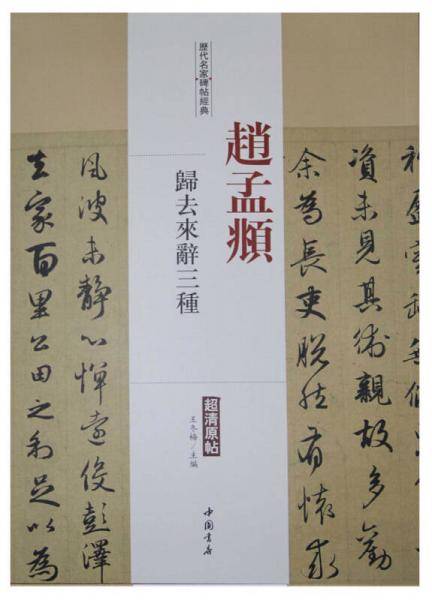 歷代名家碑帖經典
趙孟頫
歸去來辭三種
超清原帖
王冬梅/主編
中國書店
資未見其術親故多勸
余為長吏脫然有懷求
風波未靜心憚遠役彭澤
去家百里公田之利足以為